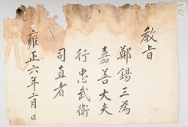 教旨
鄭錫三為
嘉善大夫
行忠武衛
司直者
雍正六年二月 日